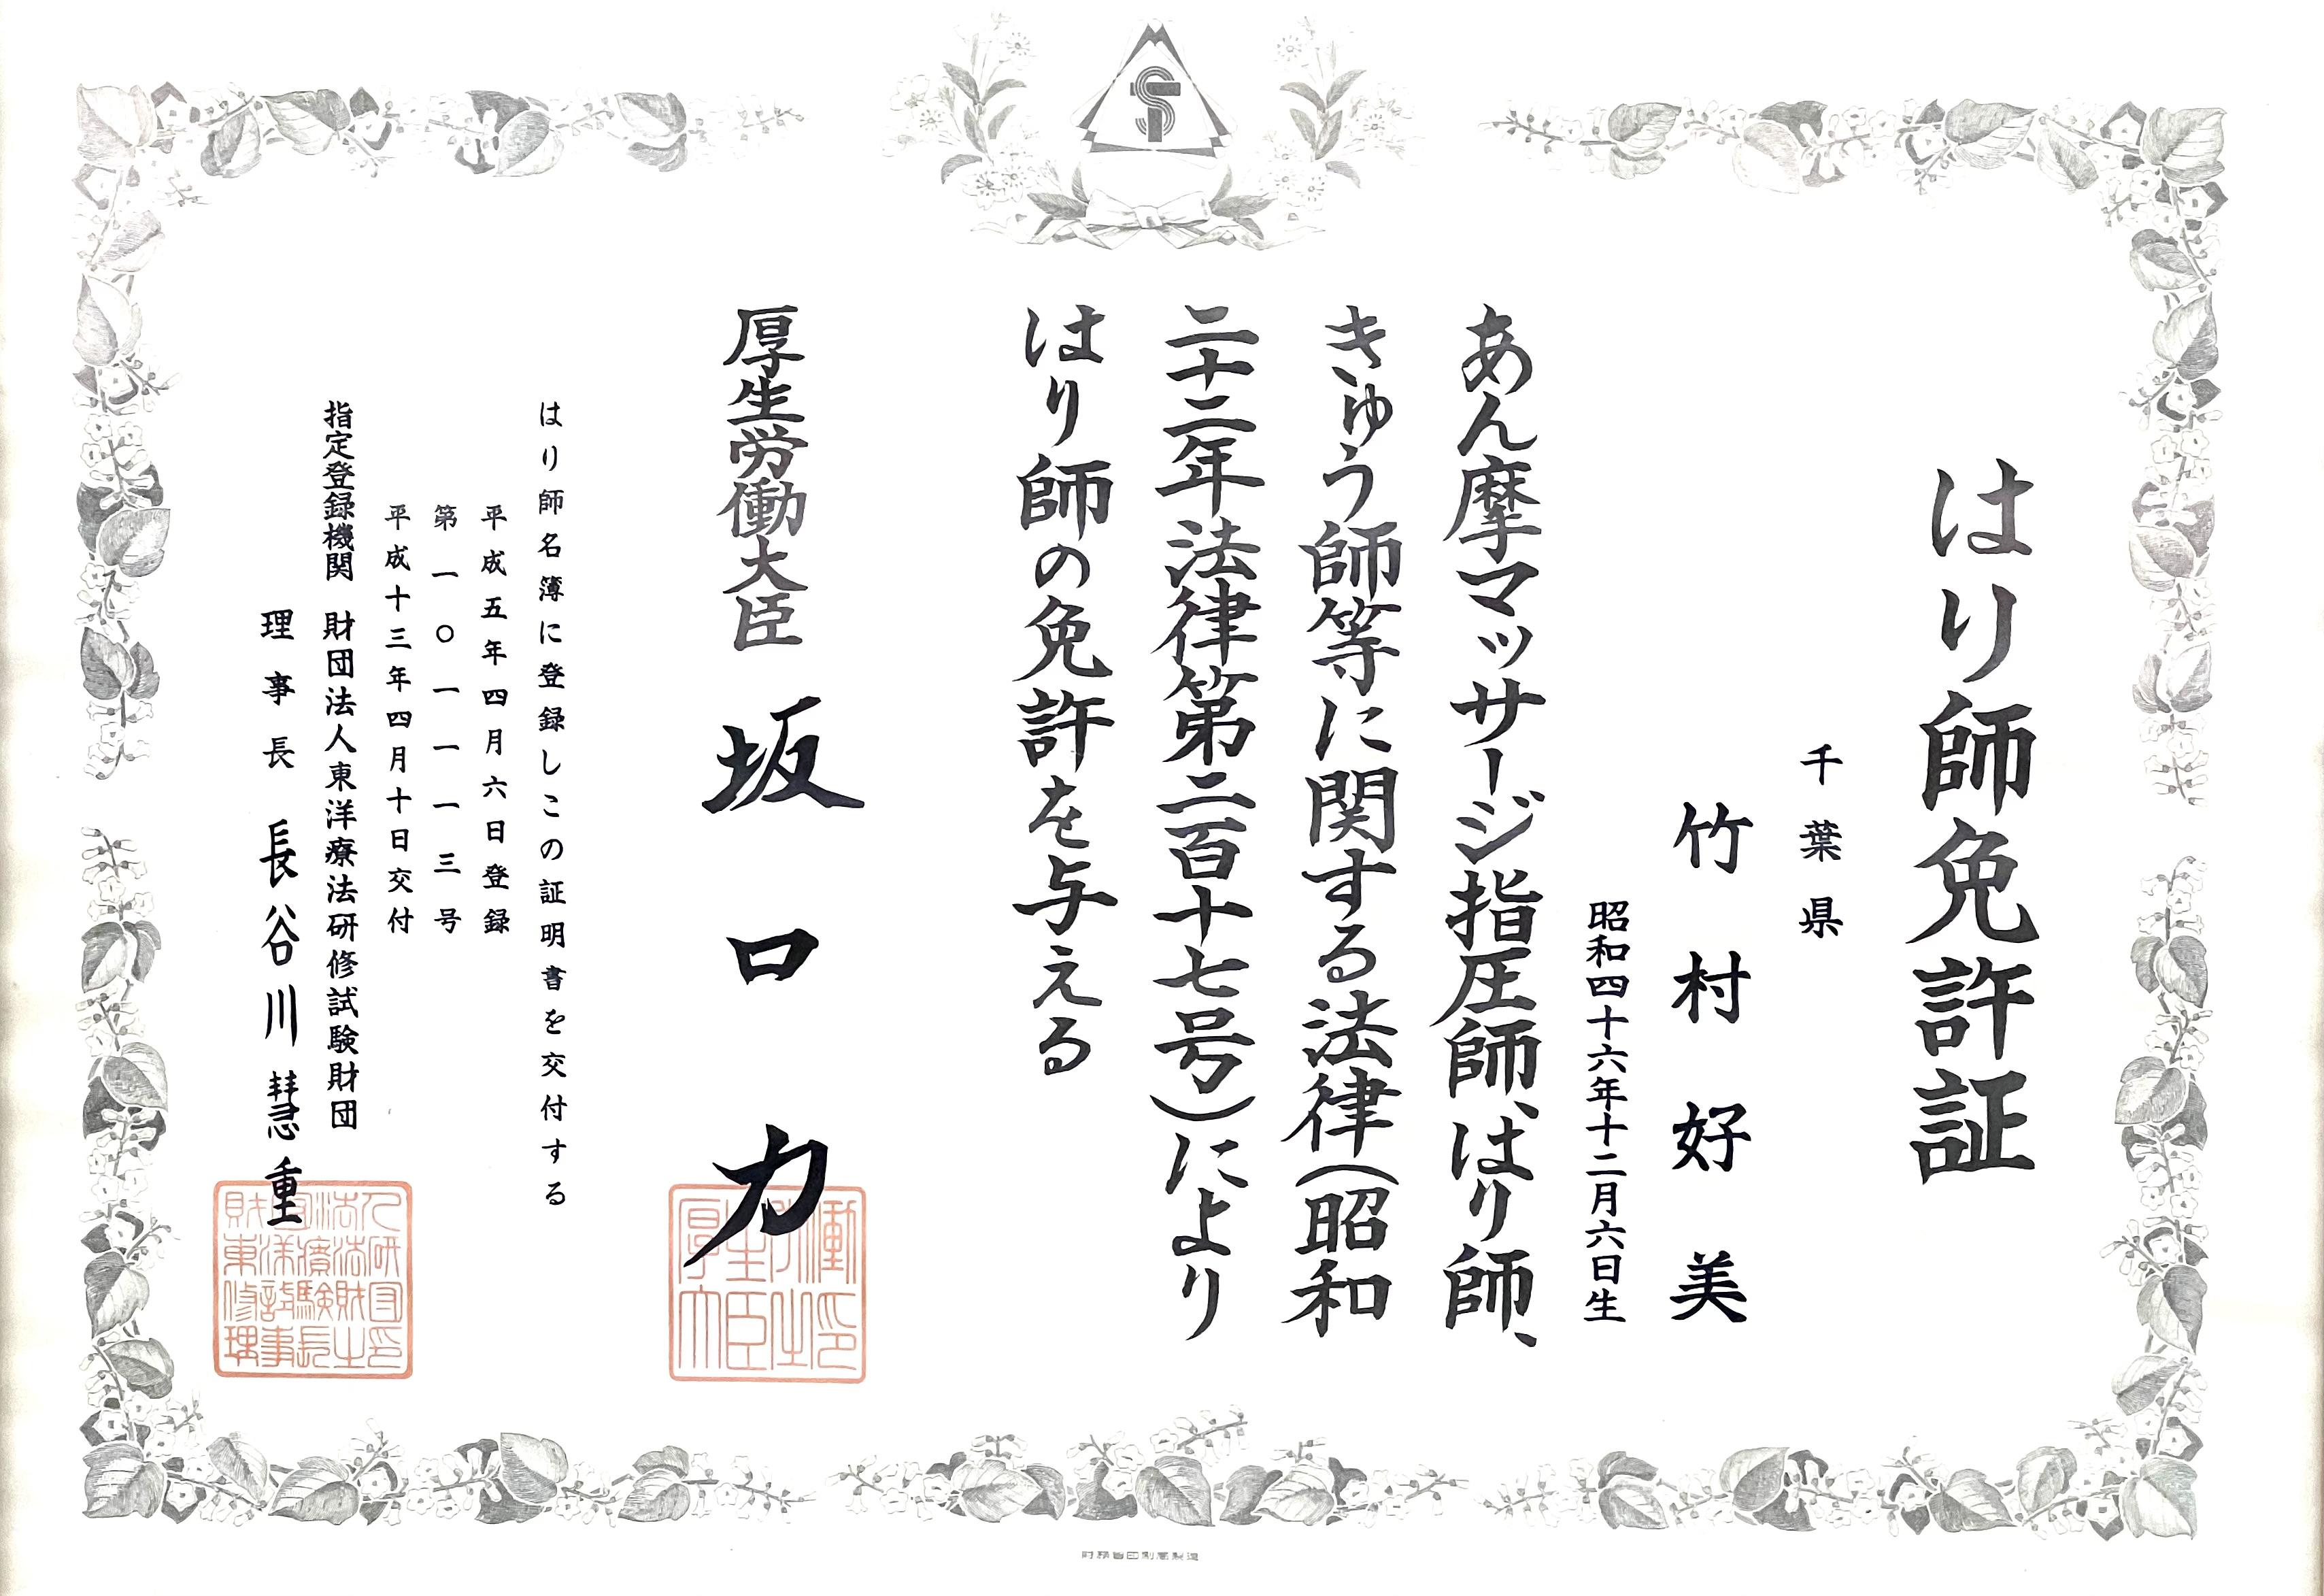 はり師免許証
千葉県
竹村好美
昭和四十六年十二月六日生
あん摩マッサージ指圧師、はり師、
きゅう師等に関する法律(昭和
二十二年法律第二百十七号)により
はり師の免許を与える
厚生労働大臣 坂口力
はり師名簿に登録しこの証明書を交付する
平成五年四月六日登録
第一〇一一一三号
平成十三年四月十日交付
指定登録機関 財団法人東洋療法研修試験財団
理事長 長谷川慧重
財務省印刷局製造